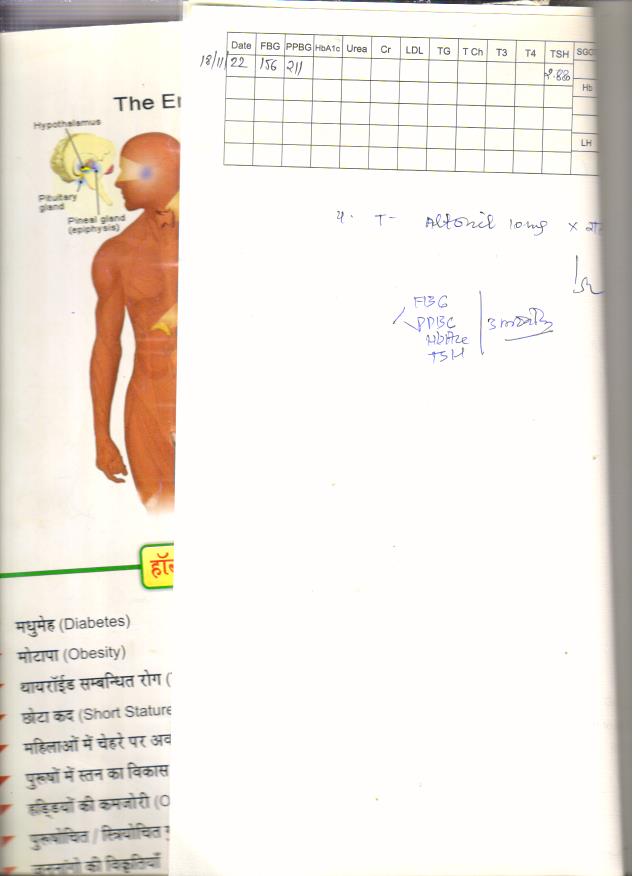 Date FBG PPBG HbA1c Urea Cr LDL TG T Ch T3 T4 TSH SGO
18/11/22 156 211
Hb
LH
The E
Hypothalamus
Pituitary
gland
Pineal gland
(epiphysis)
४. T- Altonil 10mg ×
FBG
PPBG
HbA1c
TSH
3
हॉ
मधुमेह (Diabetes)
मोटापा (Obesity)
थायरॉईड सम्बन्धित रोग (
छोटा कद (Short Stature
महिलाओं में चेहरे पर अ
पुरूषों में स्तन का विकास
हड्डियों की कमजोरी (O
पुरूषोचित / स्त्रियोचित
जननांगो की विकृतियाँ